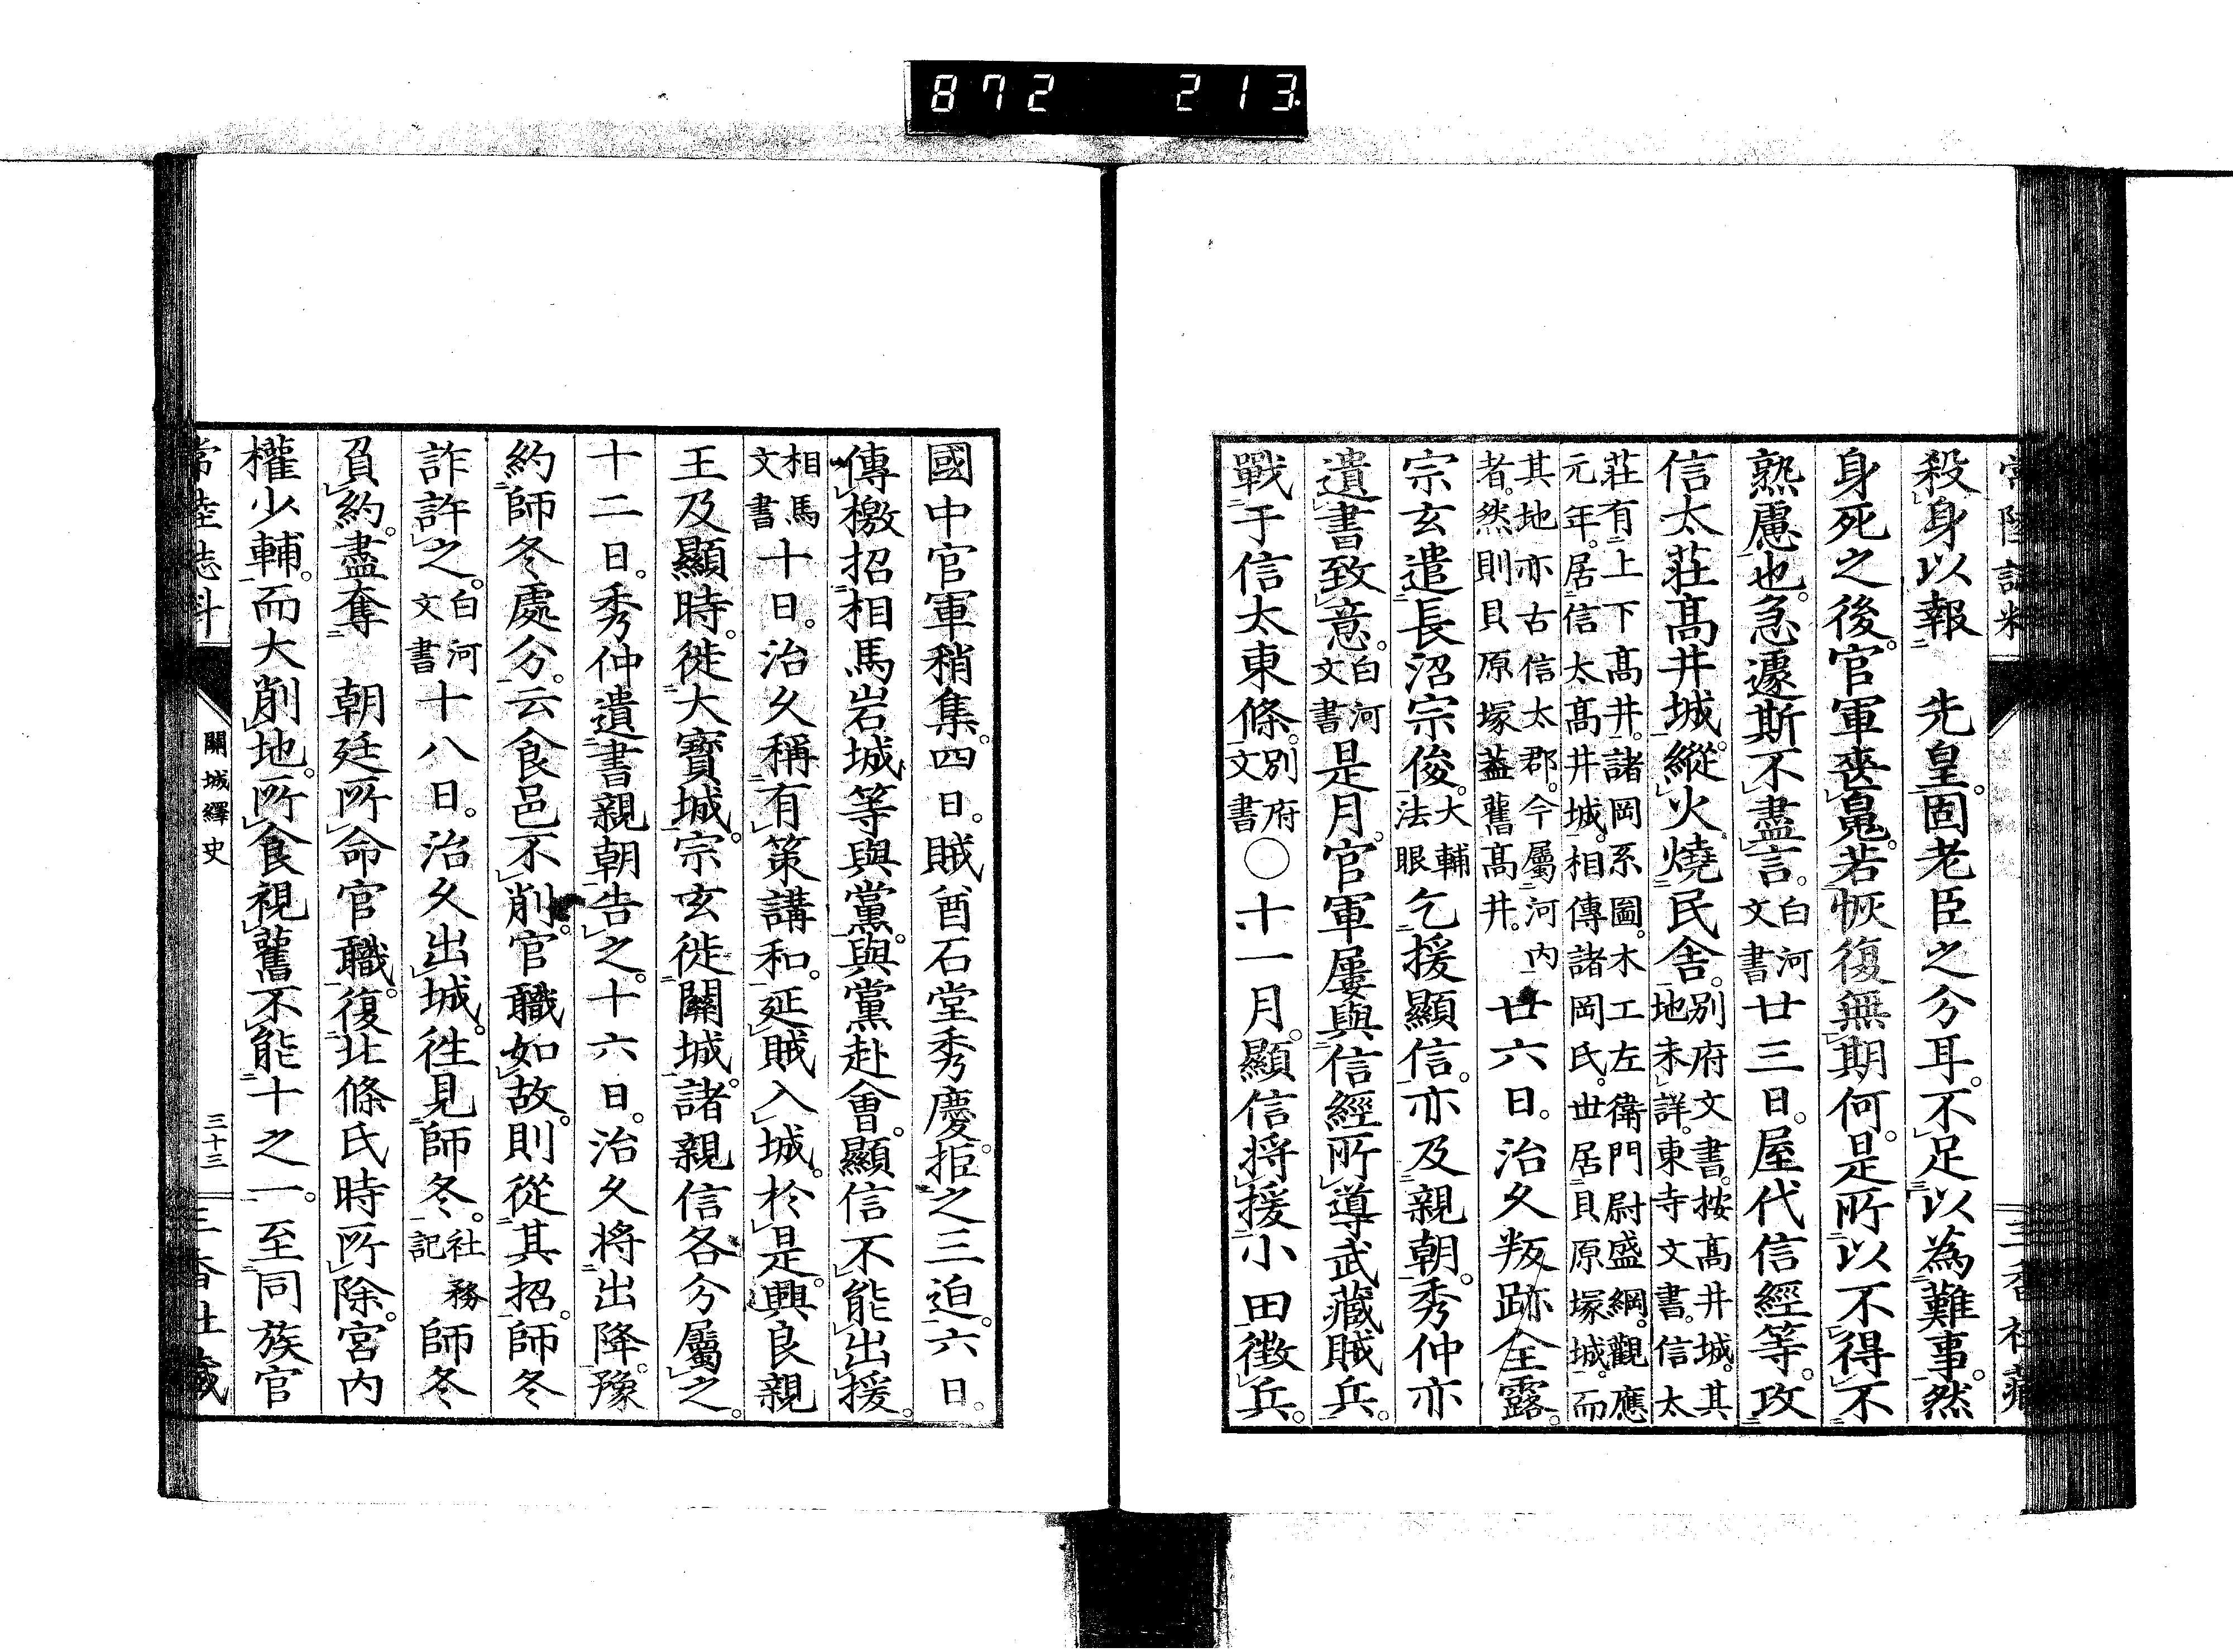 872 213
殺身以報　先皇。固老臣之分耳。不足以為難事。然
身死之後。官軍喪鬼。若恢復無期何。是所以不得不
熟慮也。急遽斯不盡言。白河文書廿三日。屋代信經等。攻
信太莊髙井城。縱火燒民舍。別府文書。按髙井城。其地未詳。東寺文書。信太
莊有上下髙井。諸岡系圖。木工左衞門尉盛綱。觀應元年。居信太髙井城。相傳諸岡氏。世居貝原塚城。而
其地亦古信太郡。今屬河内者。然則貝原塚葢舊髙井。廿六日。治久叛跡全露。
宗玄遣長沼宗俊。大輔法眼乞援顯信。亦及親朝。秀仲亦
遺書致意。白河文書是月。官軍屢與信經所導武藏賊兵。
戰于信太東條。別府文書〇十一月。顯信将援小田徴兵。
國中官軍稍集。四日。賊酋石堂秀慶。拒之三迫。六日。
傳檄招相馬岩城等與黨。與黨赴會。顯信不能出援。
相馬文書十日。治久稱有策講和。延賊入城。於是。興良親
王及顯時。徙大寳城。宗玄徙關城。諸親信各分屬之。
十二日。秀仲遺書親朝告之。十六日。治久将出降。豫
約師冬處分。云食邑不削。官職如故。則從其招。師冬
詐許之。白河文書十八日。治久出城。徃見師冬。社務記師冬
負約。盡奪　朝廷所命官職。復北條氏時所除。宮内
權少輔。而大削地。所食視舊不能十之一。至同族官
關城繹史
三十三